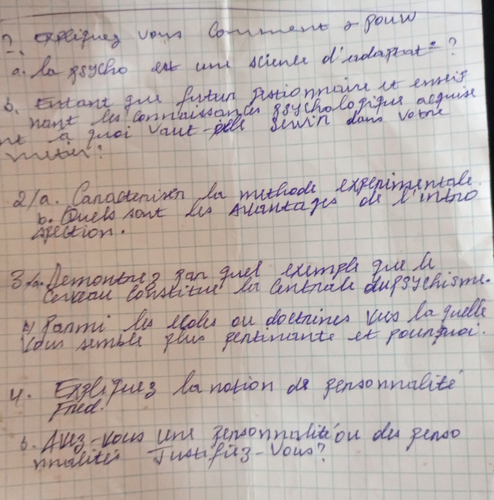 ?. expliquez vous Comment & pour
a. la psycho est une science d'adaptat° ?
b. Entant que futur gestionnaire et ensei
nant les connaissances psychologique acquise
nt à quoi vaut-elle servir dans votre
metier?
2/a. Caracteriser la methode experimentale.
b. Quels sont les avantages de l'intro
spection.
3/a. Demontrez par quel exemple que le
Cerveau constitue la centrale du psychisme.
b) Parmi les ecoles ou doctrines vus la quelle
vous semble plus pertinante et pourquoi.
4. Expliquez la notion de personnalité
b. Avez-vous une personnalité ou des perso
nnalités Justifiez-vous?